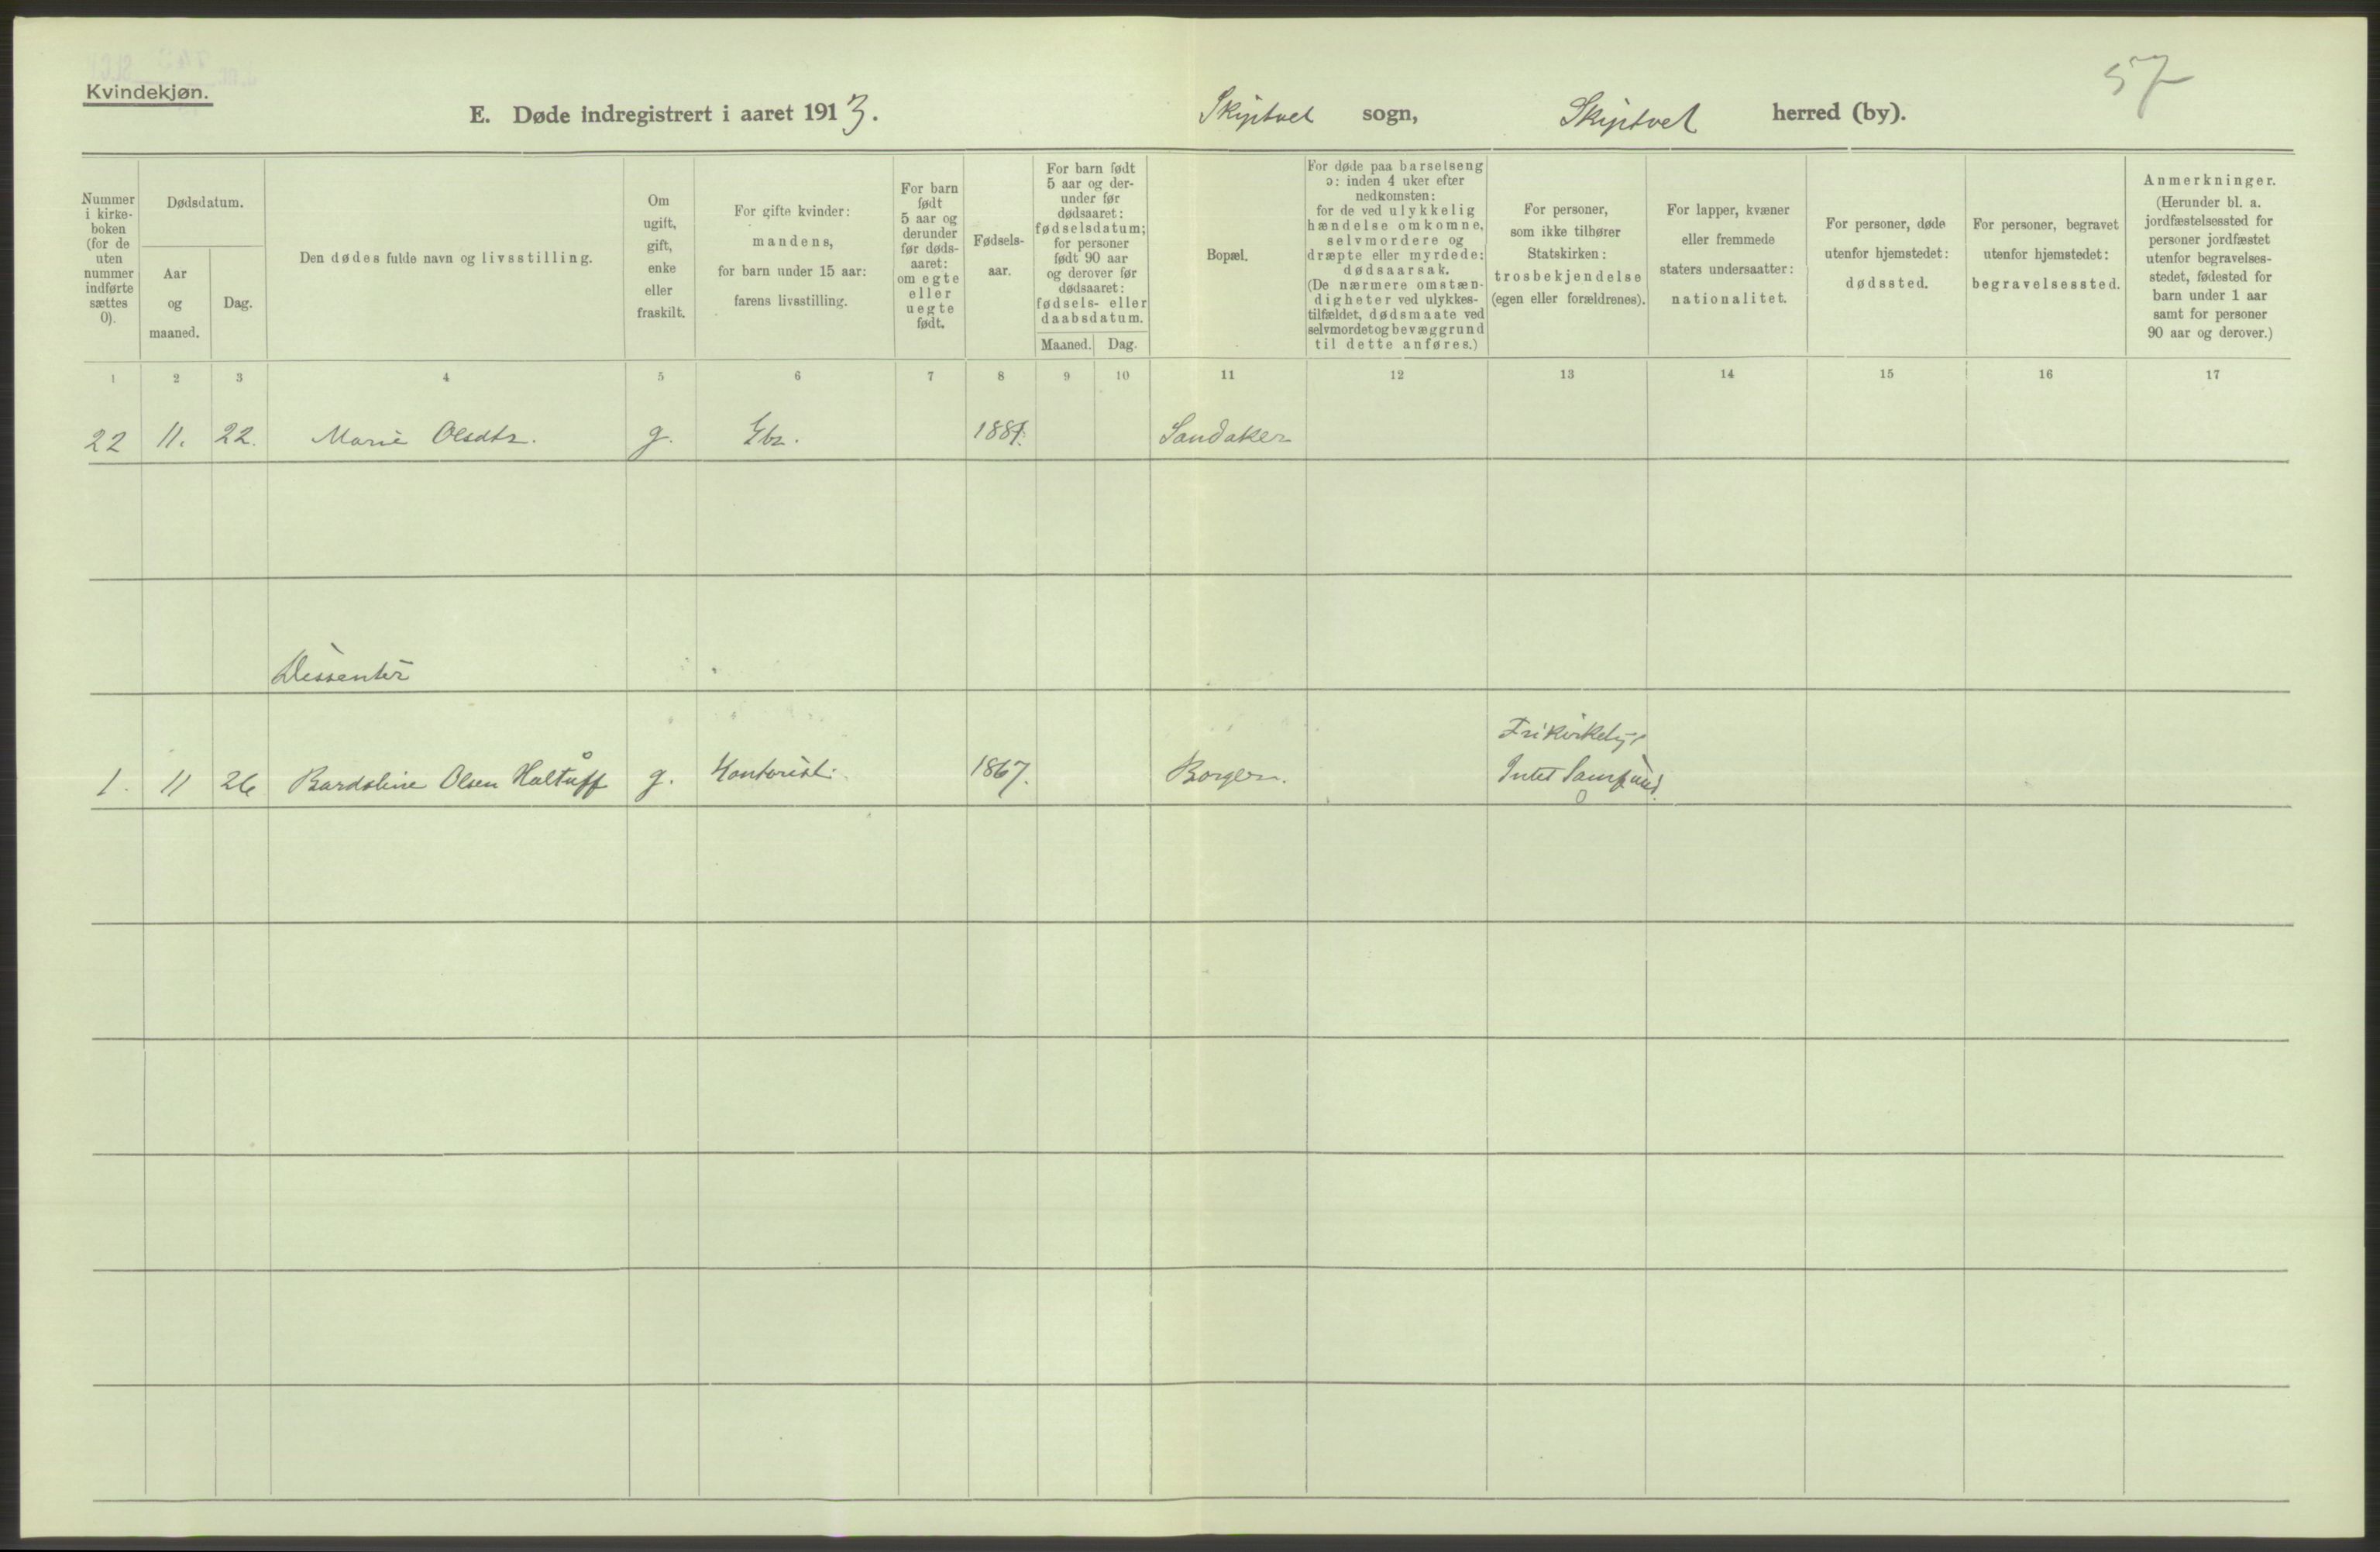 57
Kvindekjøn.
E. Døde indregistrert i aaret 1913. Skiptvet sogn, Skiptvet herred (by).
Nummer i kirke-boken (for de uten nummer indførte sættes 0).
Dødsdatum.
Aar og maaned.
Dag.
Den dødes fulde navn og livsstilling.
Om ugift, gift, enke eller fraskilt.
For gifte kvinder: mandens, for barn under 15 aar: farens livsstilling.
For barn født 5 aar og derunder før døds-aaret: om egte eller uegte født.
Fødsels-aar.
For barn født 5 aar og der-under før dødsaaret: fødselsdatum; for personer født 90 aar og derover før dødsaaret: fødsels- eller daabsdatum.
Maaned. Dag.
Bopæl.
For døde paa barselseng ɔ: inden 4 uker efter nedkomsten: for de ved ulykkelig hændelse omkomne, selvmordere og dræpte eller myrdede: dødsaarsak. (De nærmere omstæn-digheter ved ulykkes-tilfældet, dødsmaate ved selvmordet og bevæggrund til dette anføres.)
For personer, som ikke tilhører Statskirken: trosbekjendelse (egen eller forældrenes).
For lapper, kvæner eller fremmede staters undersaatter: nationalitet.
For personer, døde utenfor hjemstedet: dødssted.
For personer, begravet utenfor hjemstedet: begravelsessted.
Anmerkninger. (Herunder bl. a. jordfæstelsessted for personer jordfæstet utenfor begravelses-stedet, fødested for barn under 1 aar samt for personer 90 aar og derover.)
1 2 3 4 5 6 7 8 9 10 11 12 13 14 15 16 17
22 11. 22. Marie Olsdtr. g. Gbr. Sandaker
Dissenter
Frikirkelig
1. 11 26 Bardoline Olsen g. Kontorist. 1867. Borgen. Intet Samfund.